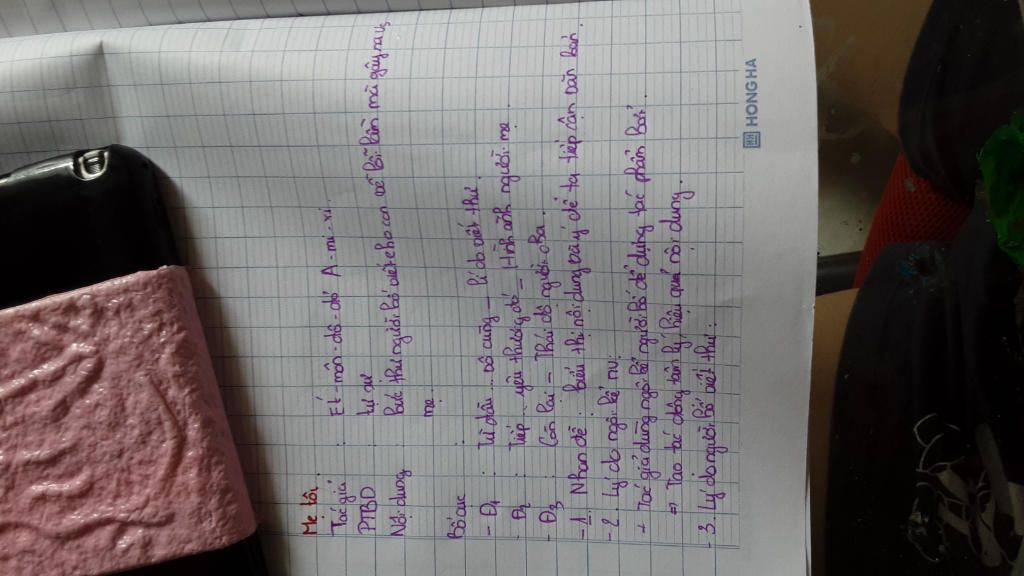 Mẹ tôi.
Tác giả : Ét-môn-đô-đô A-mi-xi.
PTBD : tự sự
Nội dung : bức thư người bố viết cho con về lỗi lầm mà gây ra vs
mẹ.
Bố cục :
- Đ1 : Từ đầu ... vô cùng - lí do viết thư.
Đ2 : Tiếp ... yêu thương đó - Hình ảnh người mẹ.
- Đ3 : Còn lại - Thái độ người cha.
- 1. Nhan đề : biểu thị nội dung gây ý để ta tiếp cận văn bản.
- 2. Lý do ngôi kể
+ Tác giả dùng ngôi kể người bố để dụng tác phẩm bởi.
=> Tạo tác động tâm lý, hiệu quả nội dung.
- 3. Lý do người bố viết thư :
HONG HA